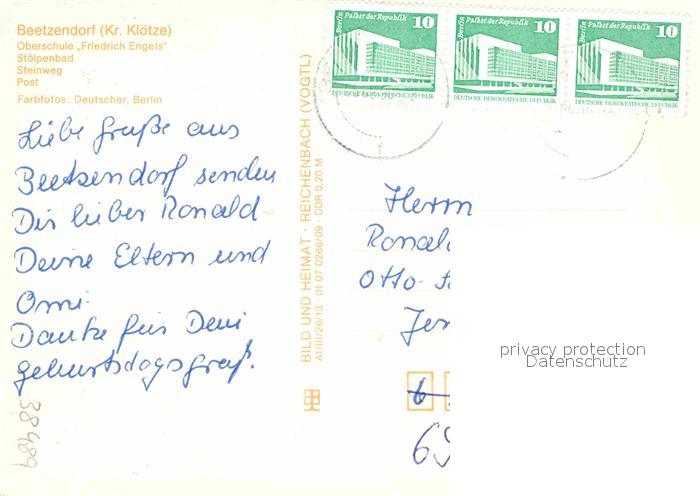 Beetzendorf (Kr. Klötze)
Oberschule „Friedrich Engels"
Stölpenbad
Steinweg
Post
Farbfotos: Deutscher, Berlin
Liebe Grüße aus
Beetzendorf senden
Dir lieber Ronald
Deine Eltern und
Omi.
Danke für Dein
Geburtsdagsgruß.
38489
BILD UND HEIMAT · REICHENBACH (VOGTL)
A1/III/26/13 · 01 07 0266/09 · DDR 0,20 M
Berlin Palast der Republik 10
DEUTSCHE DEMOKRATISCHE REPUBLIK
Berlin Palast der Republik 10
DEUTSCHE DEMOKRATISCHE REPUBLIK
Berlin Palast der Republik 10
DEUTSCHE DEMOKRATISCHE REPUBLIK
Herrn
Ronal
Otto-
Jen
6
69
privacy protection
Datenschutz